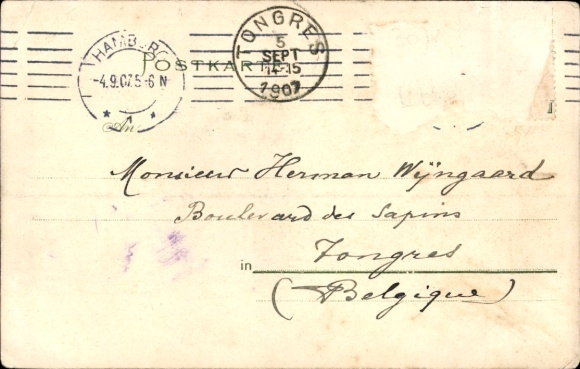 HAMBURG
-4.9.07.5-6N
* 1 *
TONGRES
5
SEPT
14-15
1907
POSTKARTE
An
Monsieur Herman Wÿngaard
Boulevard des Sapins
Tongres
in
(Belgique)